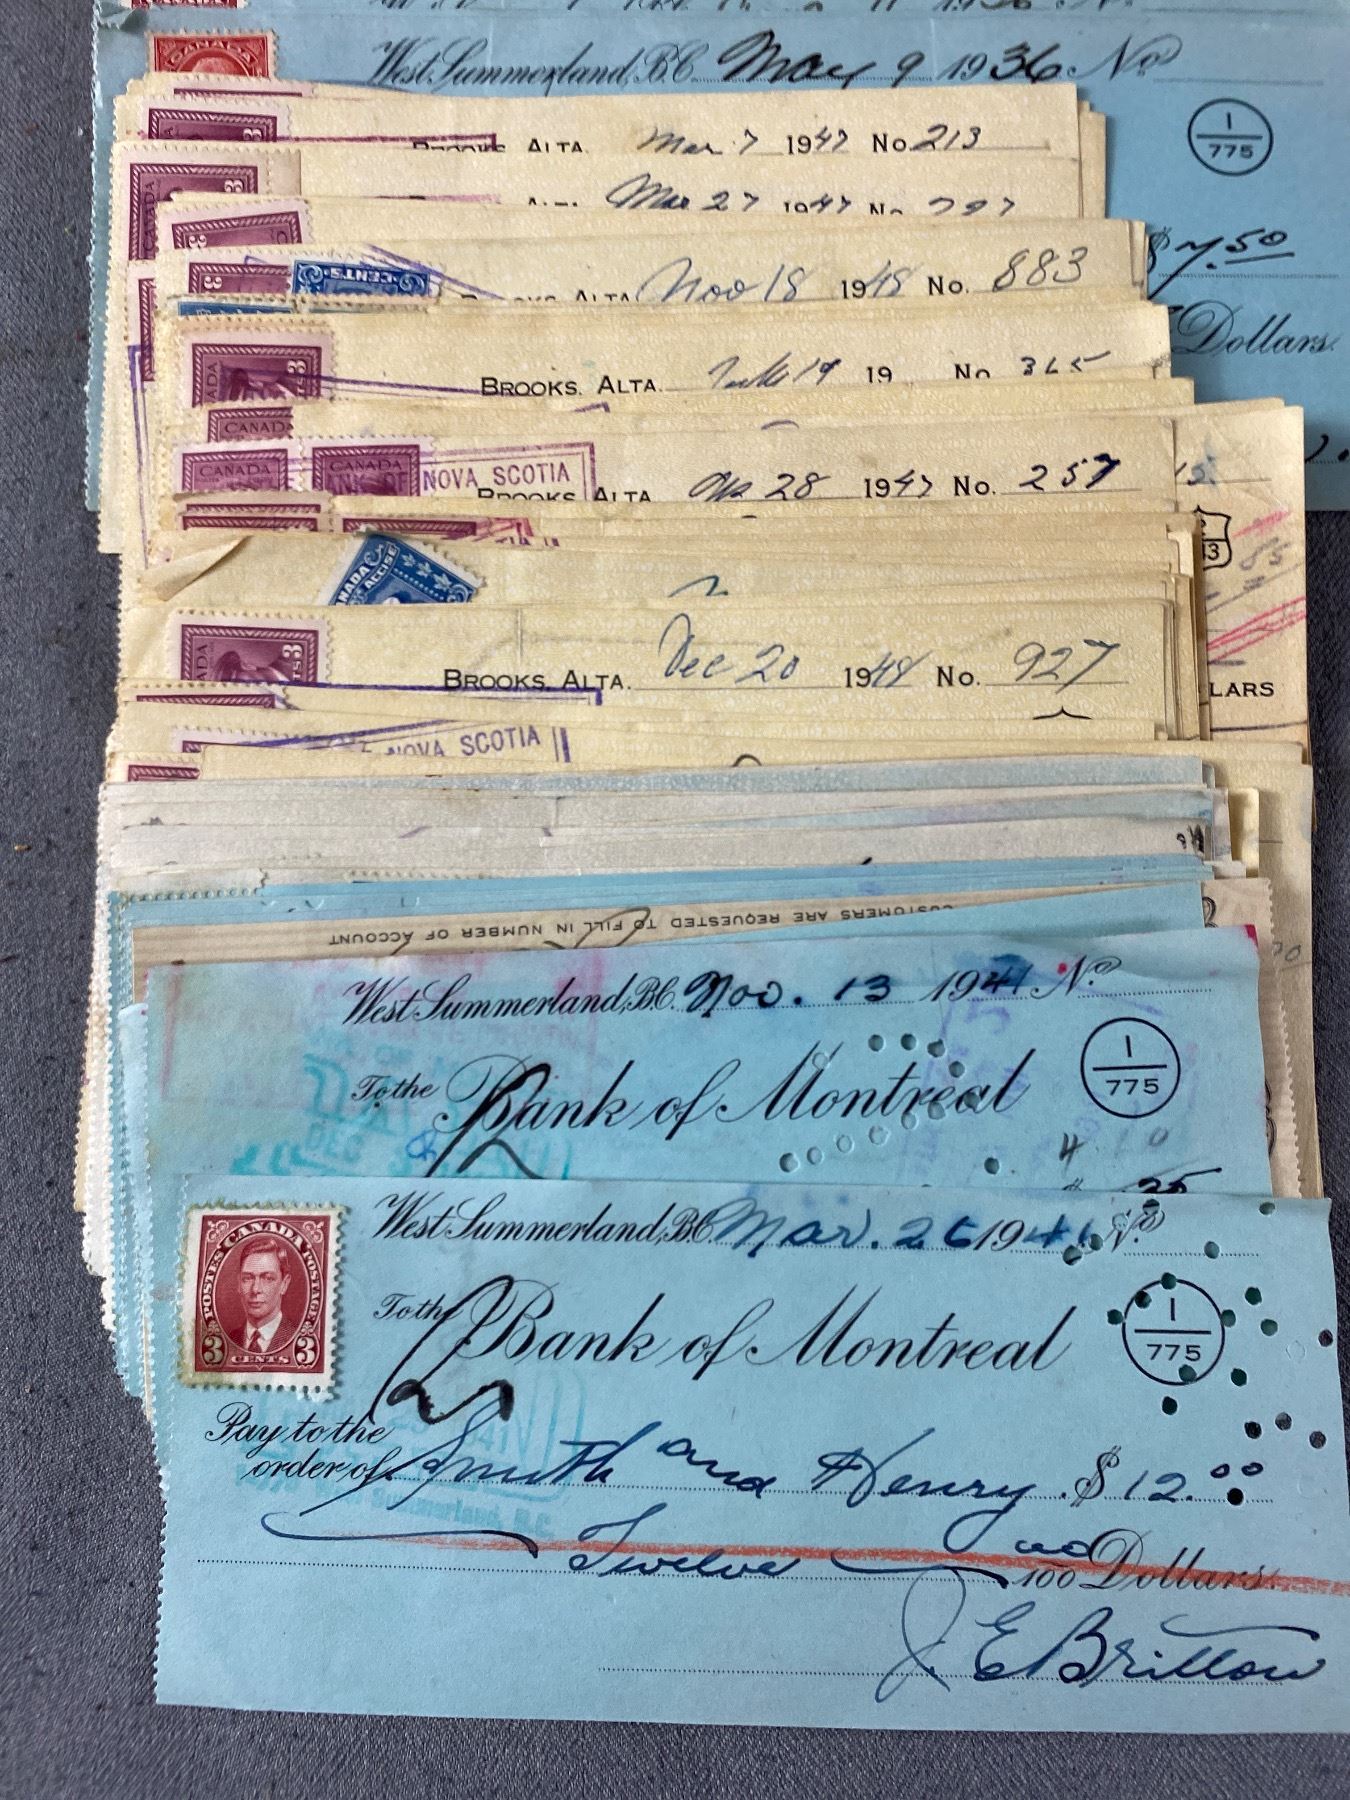 CANADA
West Summerland, B.C. May 9 1936 No.
1
775
Brooks, Alta. Mar 7 1947 No. 213
Mar 27 1947 No.
CANADA
3
$ 7.50
CENTS
Brooks, Alta. Nov 18 1948 No. 883
Dollars.
Brooks, Alta. 19 No. 365
CANADA
CANADA CANADA
BANK OF NOVA SCOTIA
Brooks, Alta. Ap 28 1947 No. 257
CANADA
ACCISE
Brooks, Alta. Dec 20 1948 No. 927
LARS
NOVA SCOTIA
CUSTOMERS ARE REQUESTED TO FILL IN NUMBER OF ACCOUNT
West Summerland, B.C. Nov. 13 1941 No.
To the Bank of Montreal
1
775
West Summerland, B.C. Mar. 26 1941 No.
POSTES CANADA POSTAGE
3 CENTS 3
To the Bank of Montreal
1
775
Pay to the
order of Smith and Henry $ 12.00
West Summerland, B.C.
Twelve no/100 Dollars.
J. E. Britton